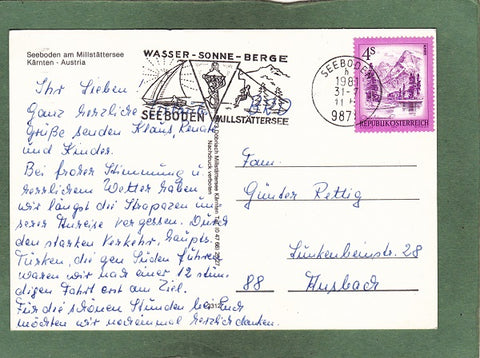 Seeboden am Millstättersee
Kärnten - Austria
WASSER-SONNE-BERGE
SEEBODEN
MILLSTÄTTERSEE
SEEBODEN
1981
31-
11
987
4S
REPUBLIK ÖSTERREICH
Ihr Lieben
Ganz herzliche
Grüße senden Klaus,
und Kinder.
Bei froher Stimmung u.
herrlichem Wetter haben
wir längst die Strapazen un-
serer Anreise vergessen. Durch
den starken Verkehr, haupts.
Türken, die gen Süden führen
waren wir nach einer 12 stün-
digen Fahrt erst am Ziel.
Für die schönen Stunden bei Euch
möchten wir nocheinmal herzlich danken.
Millstättersee Kärnten Tel.
Nachdruck verboten
BRD
Fam.
Günter Rettig
28
88 Ansbach